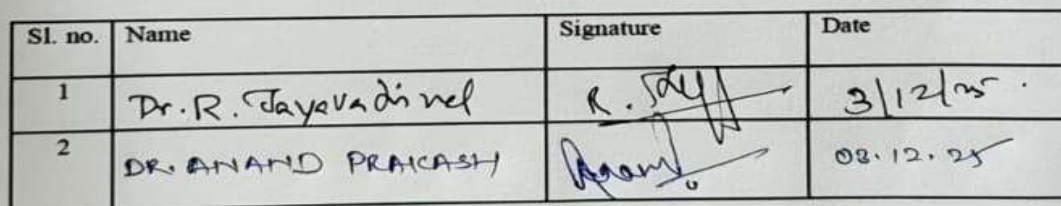 Sl. no. Name Signature Date
1 Dr. R. Jayavadivel R. 3/12/25
2 DR. ANAND PRAKASH Anand 03.12.25